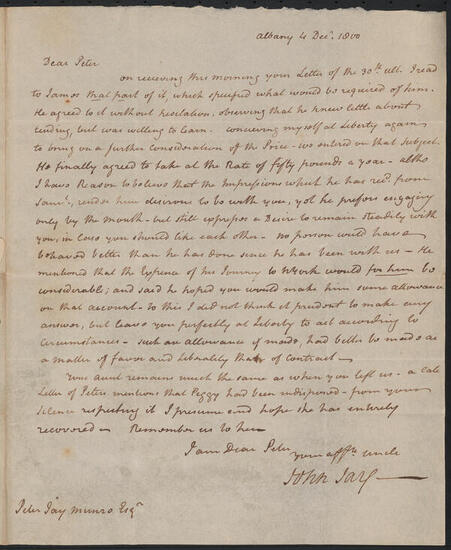 Albany 4 Decr. 1800
Dear Peter
on recieving this morning your Letter of the 30th. ult. I read
to James that part of it which specified what would be required of him.
He agreed to it without hesitation, observing that he knew little about
tending, but was willing to learn. concieving myself at Liberty again
to bring on a further consideration of the Price - we entered on that Subject.
He finally agreed to take at the Rate of fifty pounds a year - altho
I have Reason to believe that the Impressions which he has recd. from
Saml., render him desirous to be with you, yet he prefers engaging
only by the month - but still expresses a Desire to remain steadily with
you, in Case you should like each other - no person could have
behaved better than he has done since he has been with us - He
mentioned that the Expence of his Journey to NYork would for him be
considerable; and said he hoped you would make him some allowance
on that account - to this I did not think it prudent to make any
answer, but leave you perfectly at Liberty to act according to
Circumstances - such an allowance if made, had better be made as
a matter of favor and Liberality than of Contract -
Your aunt remains much the same as when you left us - a late
Letter of Peters mentions that Peggy had been indisposed - from your
Silence respecting it I presume and hope she has entirely
recovered - Remember us to her
I am Dear Peter
your affte. uncle
John Jay
Peter Jay Munro Esqr.